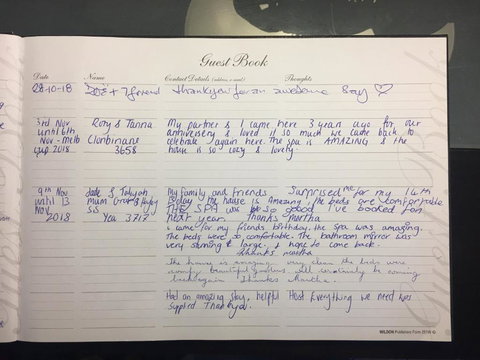 Guest Book
Date Name Contact Details (address, e-mail) Thoughts
28-10-18 + 7 friend thankyou for an awesome stay ♡
3rd Nov Rory & Tanna My partner & I came here 3 years ago for our
until 6th anniversery & loved it so much we came back to
Nov - melb Clonbinane celebrate again here. The spa is AMAZING & the
cup 2018 3658 house is so cosy & lovely.
9th Nov Jade & My family and friends Surprised me for my 14th
until 13 mum B'day the house is Amazing, the beds are comfortable
Nov sis THE SPA was so good I've booked for
2018 Yea 3717 next year. Thanks martha
i came for my friends birthday, the spa was amazing.
The beds were so comfortable. The bathroom mirror was
very stunning & large. I hope to come back.
thanks martha
The house is amazing very clean the beds were
beautiful will certainly be coming
back again Thankes Martha.
Had an amazing stay, helpful Host Everything we need was
supplied Thankyou.
WILDON Publishers Form 251W ©